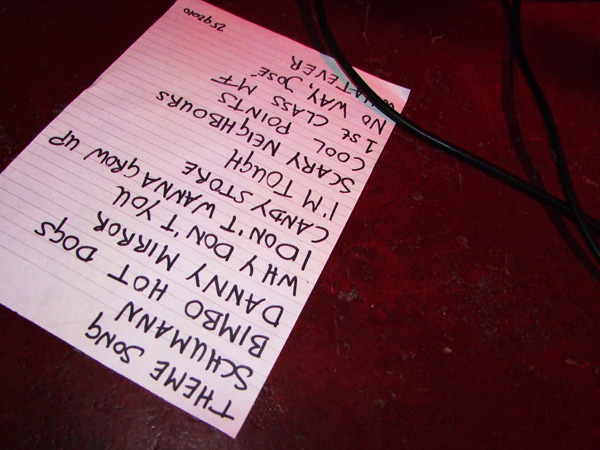 THEME SONG
SCHUMANN
BIMBO HOT DOGS
DANNY MIRROR
WHY DON'T YOU
I DON'T WANNA GROW UP
CANDY STORE
I'M TOUGH
SCARY NEIGHBOURS
COOL POINTS
1st CLASS MF
NO WAY, JOSÉ
WHATEVER